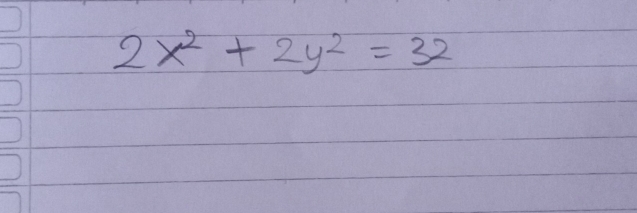 2x² + 2y² = 32